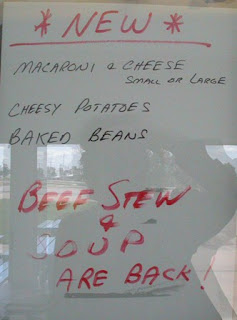 * NEW *
MACARONI & CHEESE
SMALL OR LARGE
CHEESY POTATOES
BAKED BEANS
BEEF STEW
&
SOUP
ARE BACK!